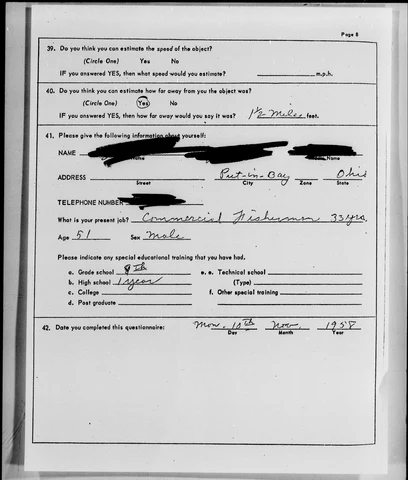 Page 8
39. Do you think you can estimate the speed of the object?
(Circle One) Yes No
IF you answered YES, then what speed would you estimate? m.p.h.
40. Do you think you can estimate how far away from you the object was?
(Circle One) Yes No
IF you answered YES, then how far away would you say it was? 1½ Miles feet.
41. Please give the following information about yourself:
NAME Name
ADDRESS Put-in-Bay Ohio
Street City Zone State
TELEPHONE NUMBER
What is your present job? Commercial Fisherman 33 yrs.
Age 51 Sex Male
Please indicate any special educational training that you have had.
a. Grade school 8th e. e. Technical school
b. High school 1 year (Type)
c. College f. Other special training
d. Post graduate
42. Date you completed this questionnaire: Mon. 10th Nov. 1958
Day Month Year